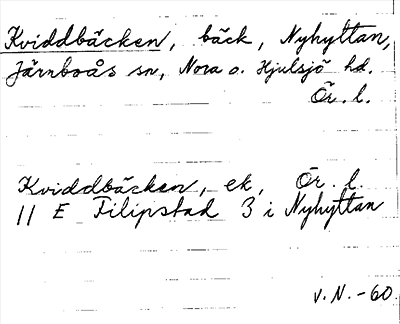 Kviddbäcken, bäck, Nyhyttan,
Järnboås sn, Nora o. Hjulsjö hd.
Ör. l.
Kviddbäcken, ek, Ör. l.
11 E Filipstad 3 i Nyhyttan
V. N. -60.